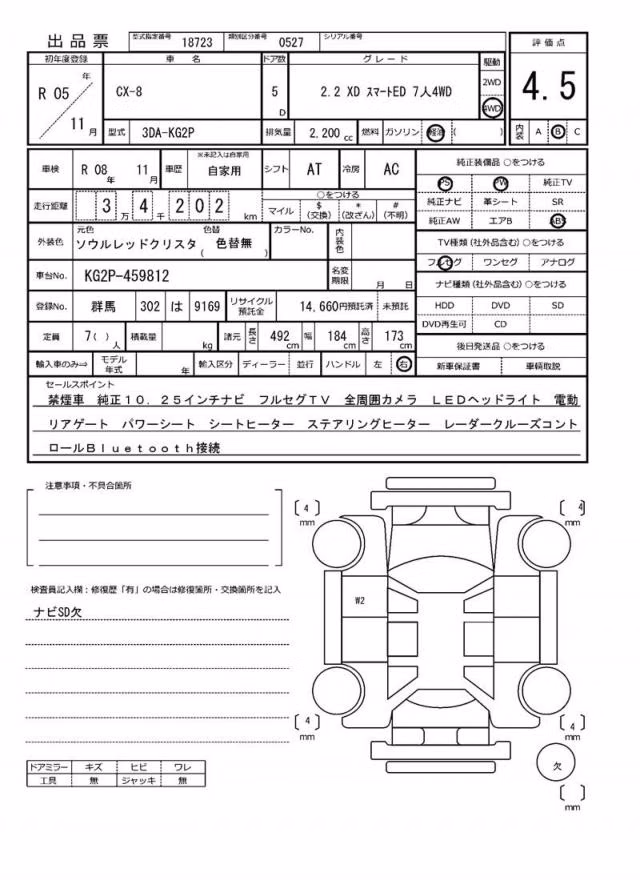 出品票 型式指定番号 18723 類別区分番号 0527 シリアル番号
初年度登録 車名 ドア数 グレード 駆動 評価点
R 05 年 11 月 CX-8 5 D 2.2 XD スマートED 7人4WD 2WD 4WD 4.5
型式 3DA-KG2P 排気量 2,200 cc 燃料 ガソリン 軽油 ( ) 内装 A B C
車検 R 08 年 11 月 車歴 ※未記入は自家用 自家用 シフト AT 冷房 AC 純正装備品 ○をつける
PS PW 純正TV
走行距離 3 万 4 千 2 0 2 km ○をつける マイル $ (交換) * (改ざん) # (不明) 純正ナビ 革シート SR
純正AW エアB ABS
外装色 元色 ソウルレッドクリスタ 色替 ( 色替無 ) カラーNo. 内装色 TV種類 (社外品含む) ○をつける
フルセグ ワンセグ アナログ
車台No. KG2P-459812 名変期限 月 日 ナビ種類 (社外品含む) ○をつける
登録No. 群馬 302 は 9169 リサイクル預託金 14,660円預託済 未預託 HDD DVD SD
DVD再生可 CD
定員 7( ) 人 積載量 kg 諸元 長さ 492 cm 幅 184 cm 高さ 173 cm 後日発送品 ○をつける
輸入車のみ⇒ モデル年式 年 輸入区分 ディーラー 並行 ハンドル 左 右 新車保証書 車輌取説
セールスポイント
禁煙車 純正10.25インチナビ フルセグTV 全周囲カメラ LEDヘッドライト 電動
リアゲート パワーシート シートヒーター ステアリングヒーター レーダークルーズコント
ロールBluetooth接続
注意事項・不具合箇所
検査員記入欄:修復歴「有」の場合は修復箇所・交換箇所を記入
ナビSD欠
ドアミラー キズ ヒビ ワレ
工具 無 ジャッキ 無
4 mm
4 mm
W2
4 mm
4 mm
欠
mm